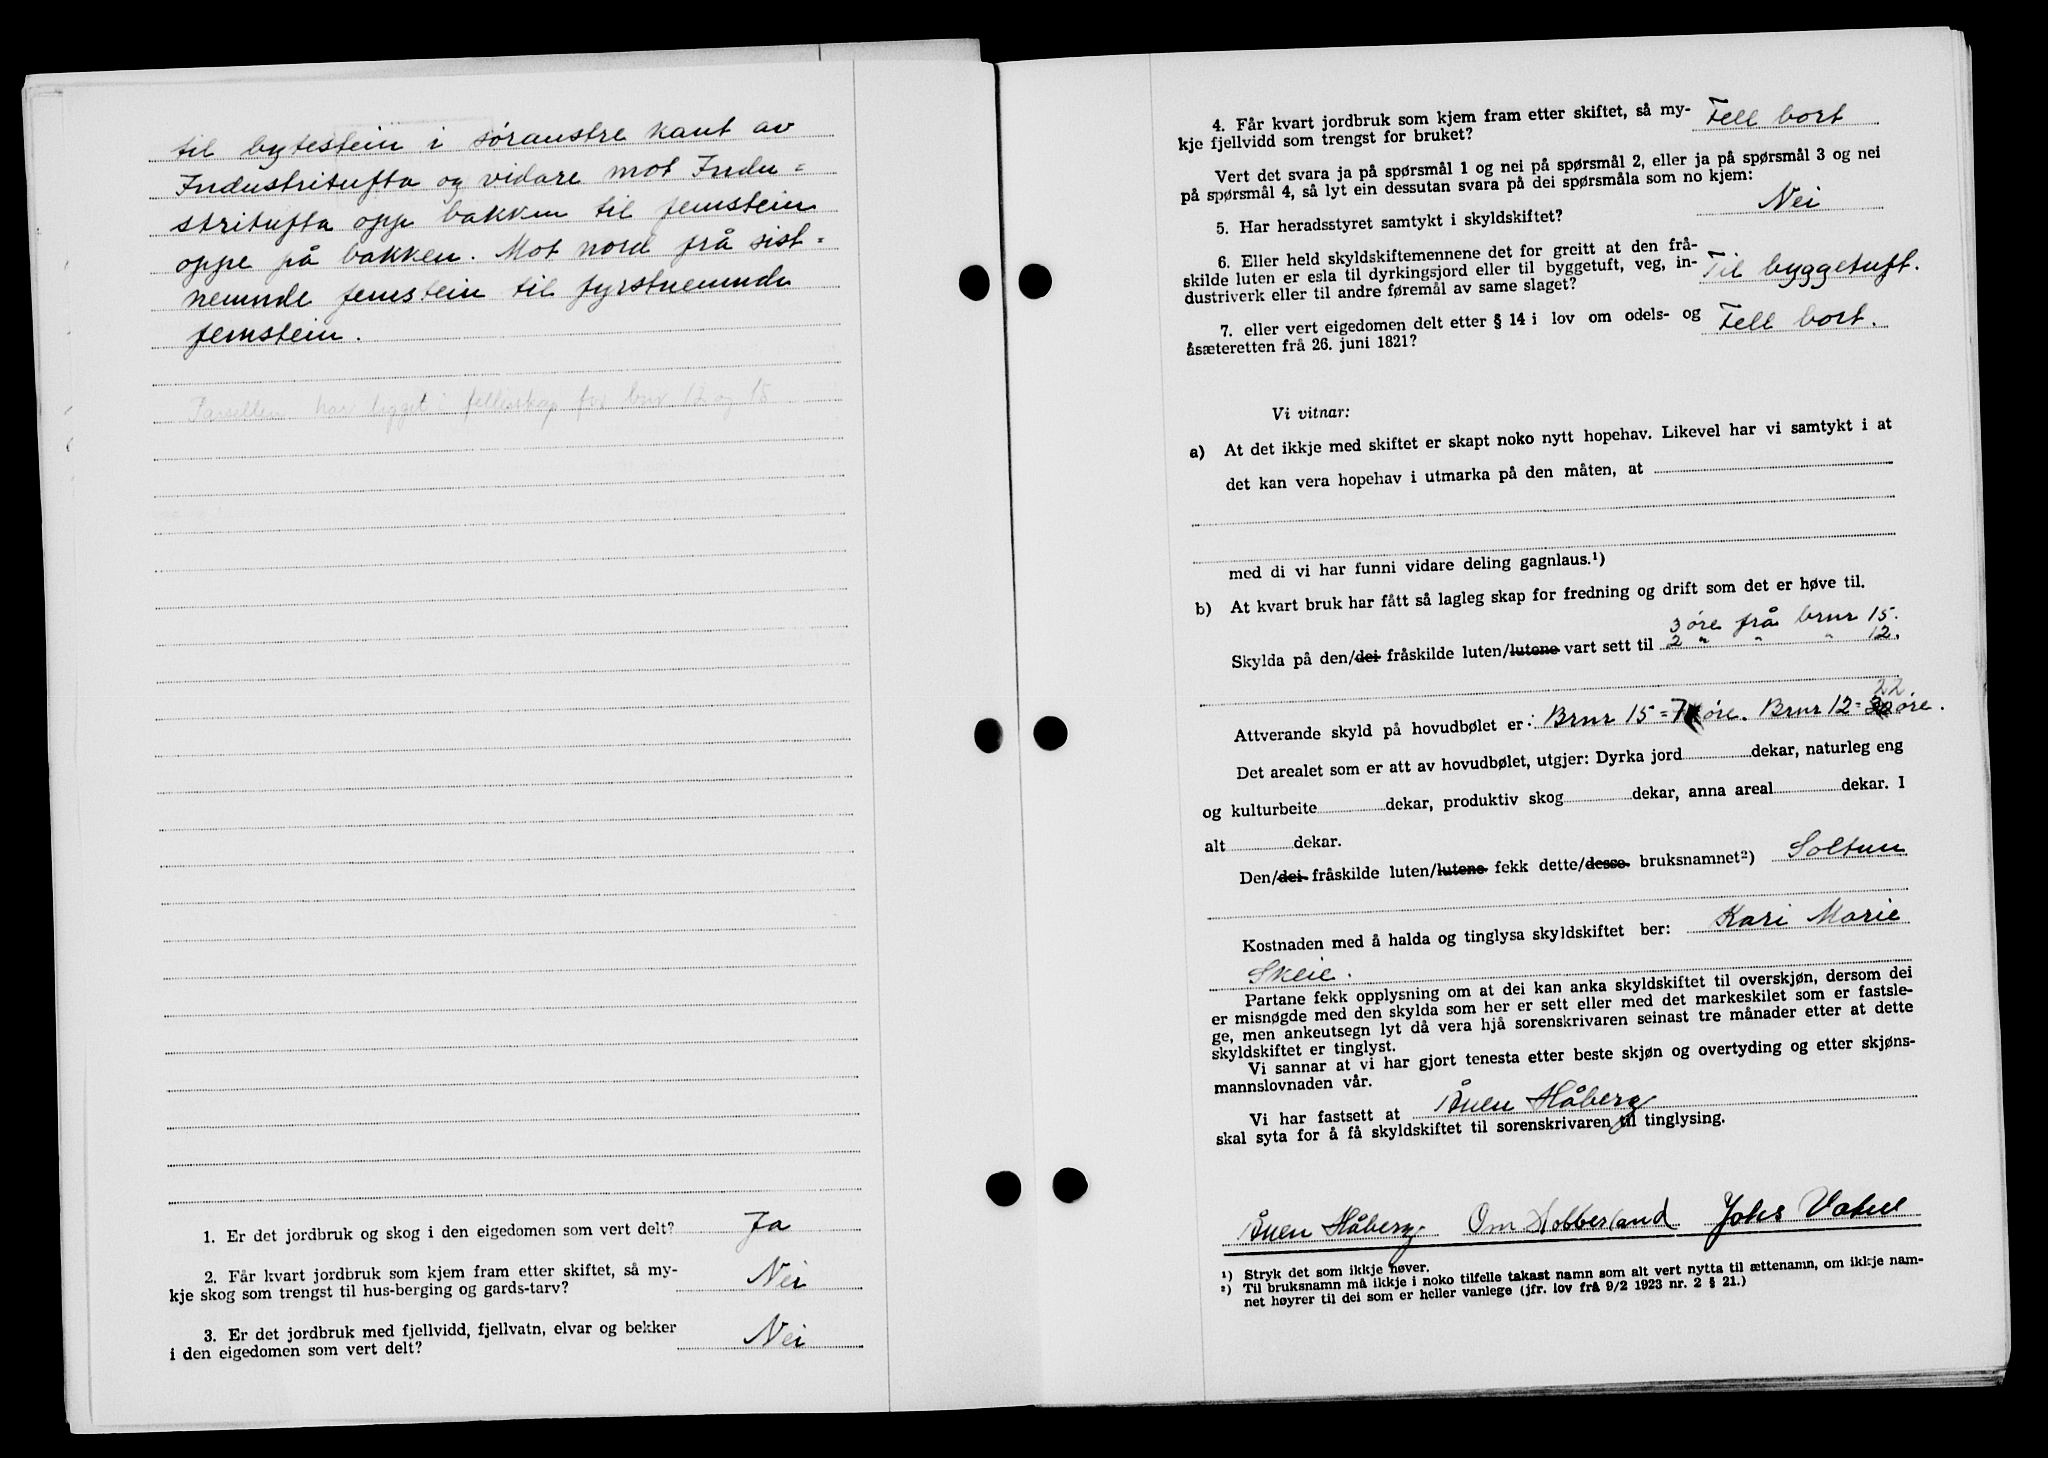 til bytestein i søraustre kant av
Industritufta og vidare mot Indu=
stritufta opp bakken til jemstein
oppe på bakken. Mot nord frå sist=
nemnde jemstein til fyrstnemnde
jemstein.
Parsellen har ligget i fellesskap for bnr 12 og 15
1. Er det jordbruk og skog i den eigedomen som vert delt? Ja
2. Får kvart jordbruk som kjem fram etter skiftet, så my-
kje skog som trengst til hus-berging og gards-tarv? Nei
3. Er det jordbruk med fjellvidd, fjellvatn, elvar og bekker
i den eigedomen som vert delt? Nei
4. Får kvart jordbruk som kjem fram etter skiftet, så my-
kje fjellvidd som trengst for bruket? Fell bort
Vert det svara ja på spørsmål 1 og nei på spørsmål 2, eller ja på spørsmål 3 og nei
på spørsmål 4, så lyt ein dessutan svara på dei spørsmåla som no kjem:
5. Har heradsstyret samtykt i skyldskiftet? Nei
6. Eller held skyldskiftemennene det for greitt at den frå-
skilde luten er esla til dyrkingsjord eller til byggetuft, veg, in-
dustriverk eller til andre føremål av same slaget? Til byggetuft.
7. eller vert eigedomen delt etter § 14 i lov om odels- og
åsæteretten frå 26. juni 1821? Fell bort.
Vi vitnar:
a) At det ikkje med skiftet er skapt noko nytt hopehav. Likevel har vi samtykt i at
det kan vera hopehav i utmarka på den måten, at
med di vi har funni vidare deling gagnlaus.¹)
b) At kvart bruk har fått så lagleg skap for fredning og drift som det er høve til.
3 øre frå brnr 15.
Skylda på den/dei fråskilde luten/lutene vart sett til 2 " " " 12.
22
Attverande skyld på hovudbølet er: Brnr 15 = 7 øre. Brnr 12 = øre.
Det arealet som er att av hovudbølet, utgjer: Dyrka jord dekar, naturleg eng
og kulturbeite dekar, produktiv skog dekar, anna areal dekar. I
alt dekar.
Den/dei fråskilde luten/lutene fekk dette/desse bruksnamnet²) Soltun
Kostnaden med å halda og tinglysa skyldskiftet ber: Kari Marie
Skeie.
Partane fekk opplysning om at dei kan anka skyldskiftet til overskjøn, dersom dei
er misnøgde med den skylda som her er sett eller med det markeskilet som er fastsle-
ge, men ankeutsegn lyt då vera hjå sorenskrivaren seinast tre månader etter at dette
skyldskiftet er tinglyst.
Vi sannar at vi har gjort tenesta etter beste skjøn og overtyding og etter skjøns-
mannslovnaden vår.
Vi har fastsett at Ånen Håberg
skal syta for å få skyldskiftet til sorenskrivaren til tinglysing.
Ånen Håberg. Om Hobbesland Johs Vatne
¹) Stryk det som ikkje høver.
²) Til bruksnamn må ikkje i noko tilfelle takast namn som alt vert nytta til ættenamn, om ikkje nam-
net høyrer til dei som er heller vanlege (jfr. lov frå 9/2 1923 nr. 2 § 21.)